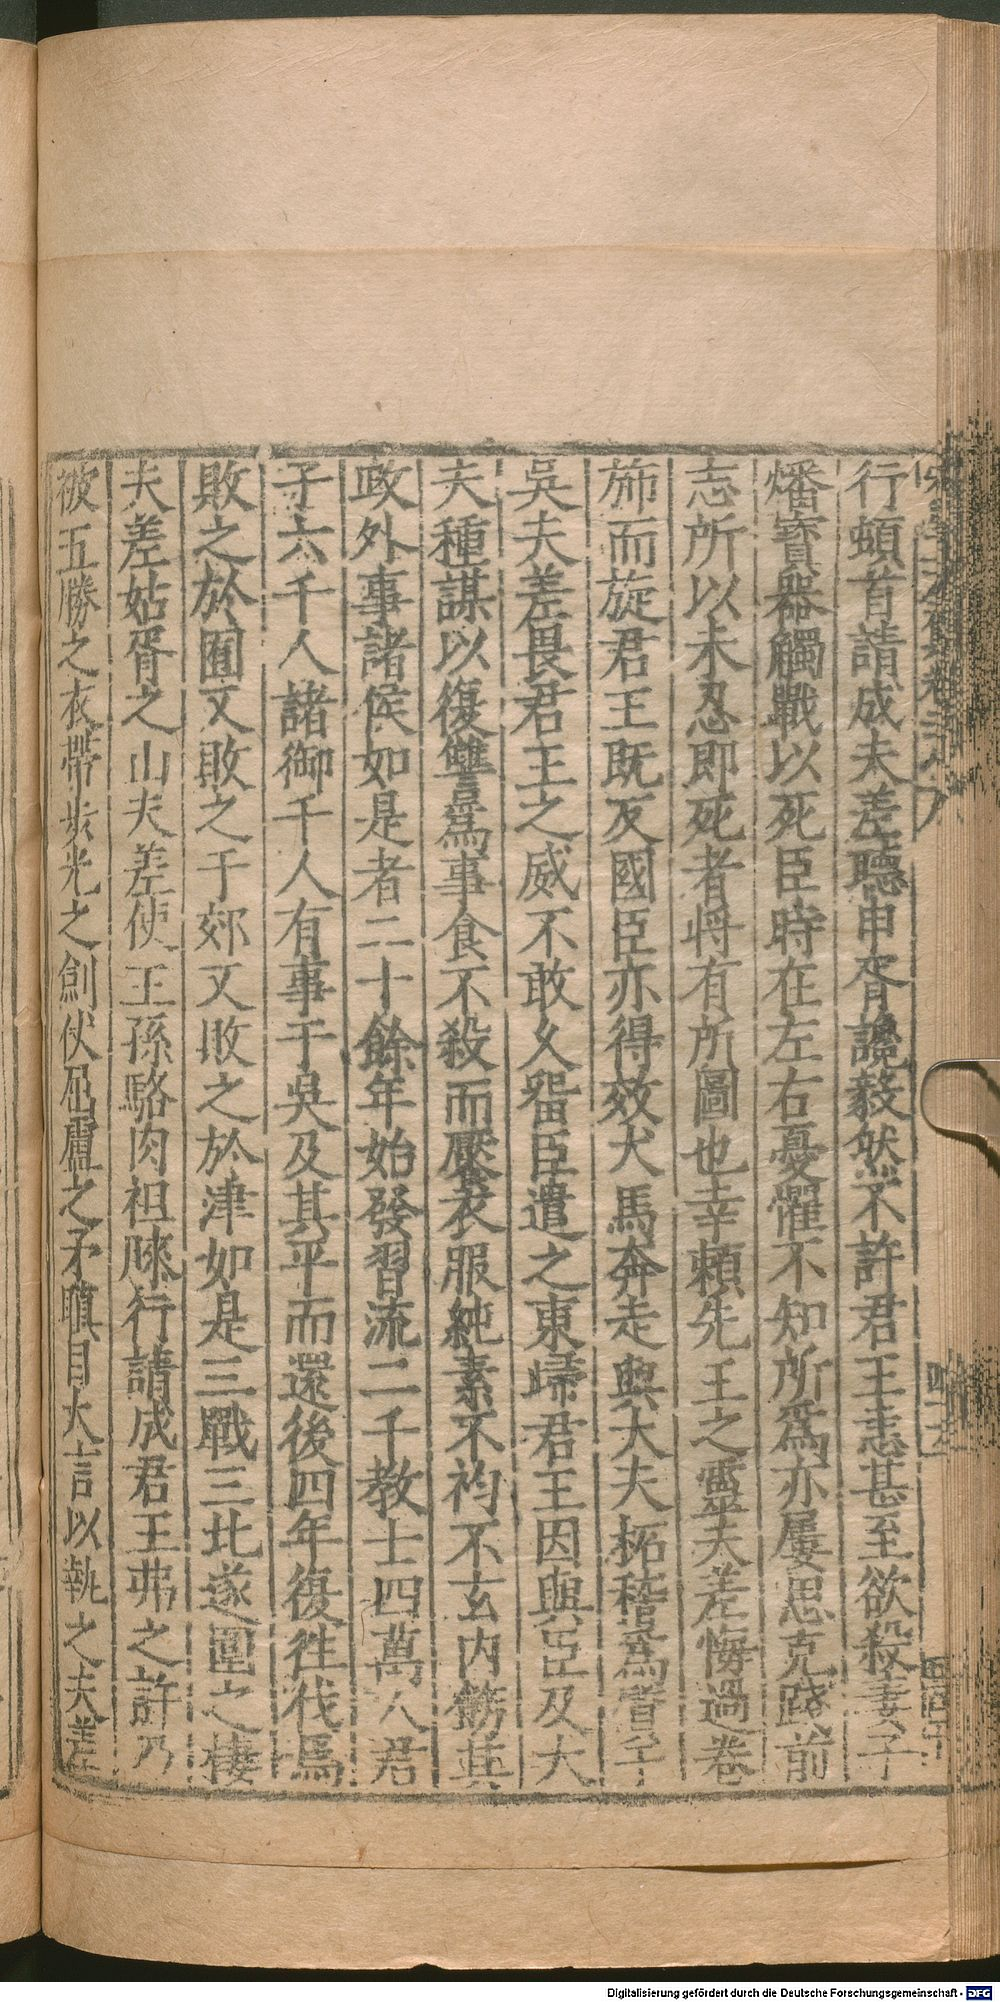 行頓首請成夫差聽申胥讒毅然不許君王恚甚至欲殺妻子
燔寳器觸戰以死臣時在左右憂懼不知所為亦屢思克踐前
志所以未忍即死者將有所圖也幸賴先王之靈夫差悔過卷
斾而旋君王既反國臣亦得效犬馬奔走與大夫柘稽為質于
吳夫差畏君王之威不敢久留臣遣之東歸君王因與臣及大
夫種謀以復讐為事食不殺而饜衣服純素不袀不玄内飭其
政外事諸侯如是者二十餘年始發習流二千教士四萬人君
子六千人諸御千人有事于吳及其平而還後四年復徃伐焉
敗之於囿又敗之于郊又敗之於津如是三戰三北遂圍之棲
夫差姑胥之山夫差使王孫駱肉袒膝行請成君王弗之許乃
被五勝之衣帶步光之劍伏屈盧之矛瞋目大言以執之夫差
Digitalisierung gefördert durch die Deutsche Forschungsgemeinschaft - DFG